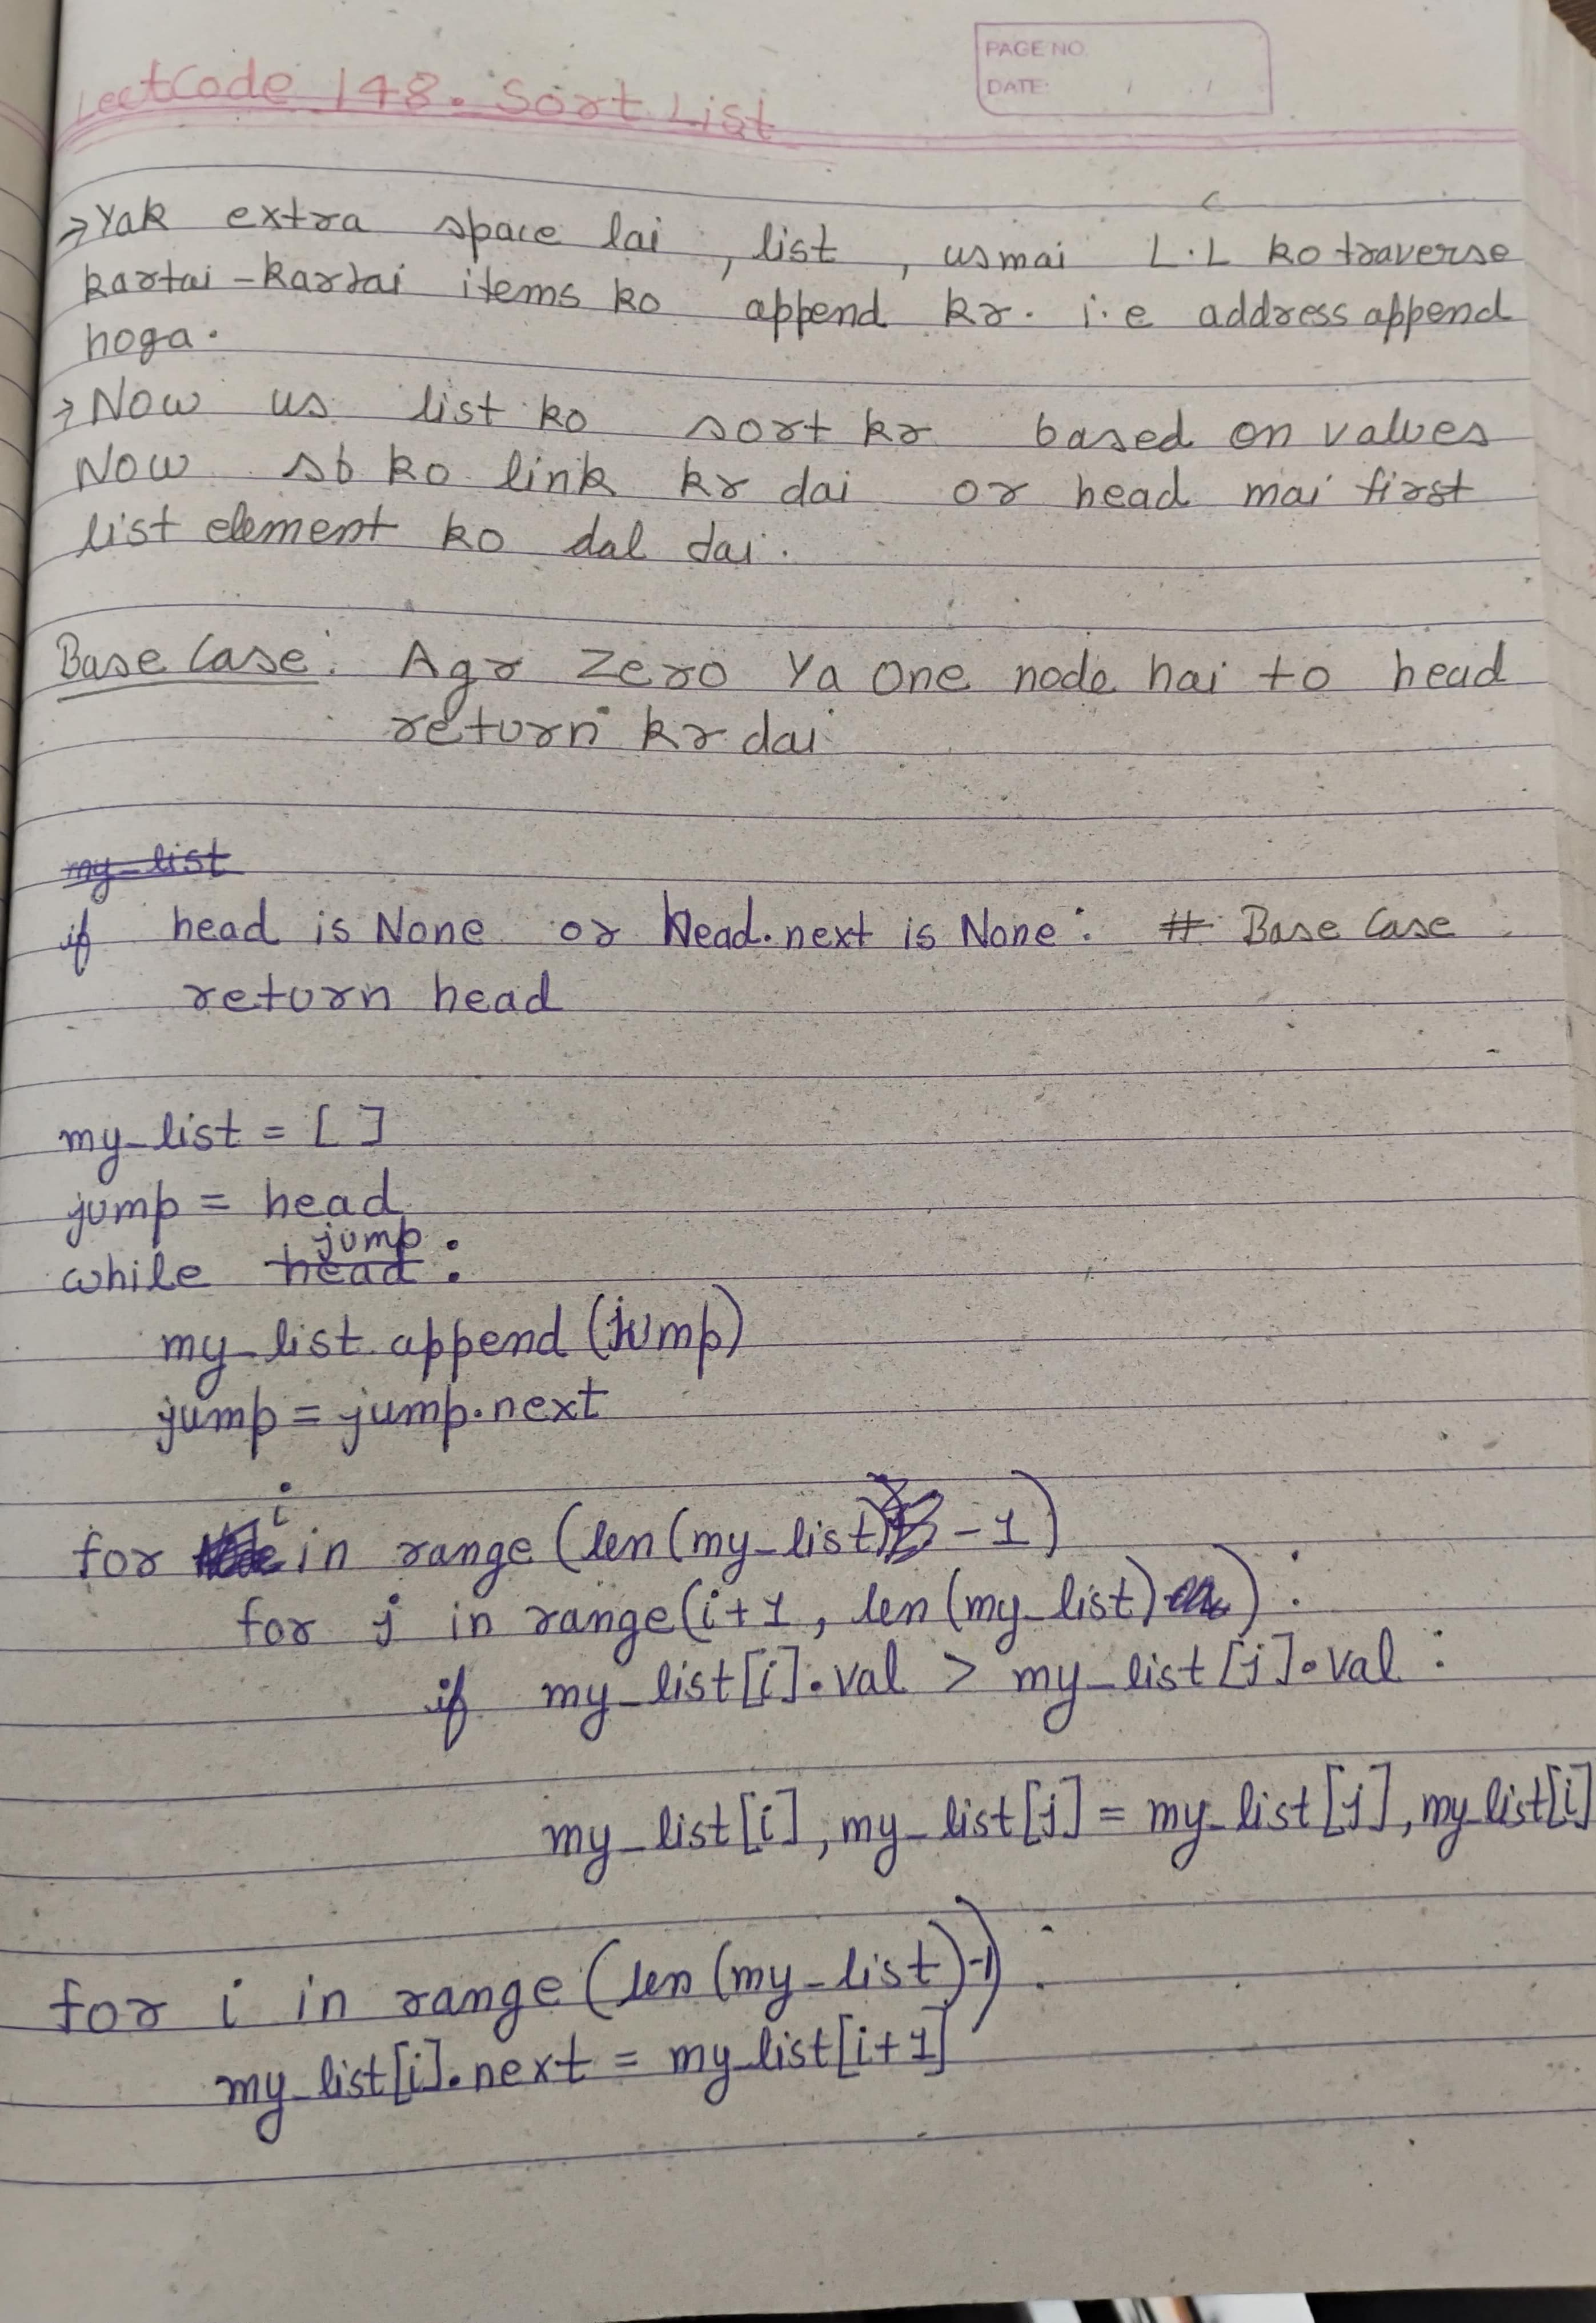 PAGE NO.
DATE: / /
LeetCode 148. Sort List
→ Yak extra space lai, list, usmai L.L ko traverse
kartai-kartai items ko append kr. i.e address append
hoga.
→ Now us list ko sort kr based on values
Now sb ko link kr dai or head mai first
list element ko dal dai.
Base Case: Agr Zero Ya One node hai to head
return kr dai
my_list
if head is None or head.next is None: # Base Case
return head
my_list = [ ]
jump = head
while head jump :
my_list.append(jump)
jump = jump.next
for i in range (len(my_list) -1)
for j in range(i+1, len(my_list)):
if my_list[i].val > my_list[j].val :
my_list[i], my_list[j] = my_list[j], my_list[i]
for i in range (len(my_list)-1):
my_list[i].next = my_list[i+1]